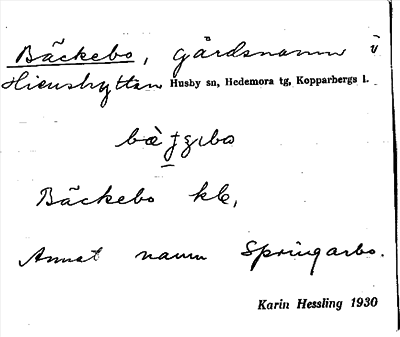 Bäckebo, gårdsnamn i
Hienshyttan Husby sn, Hedemora tg, Kopparbergs l.
Bäckebo kb,
Annat namn Springarbo.
Karin Hessling 1930